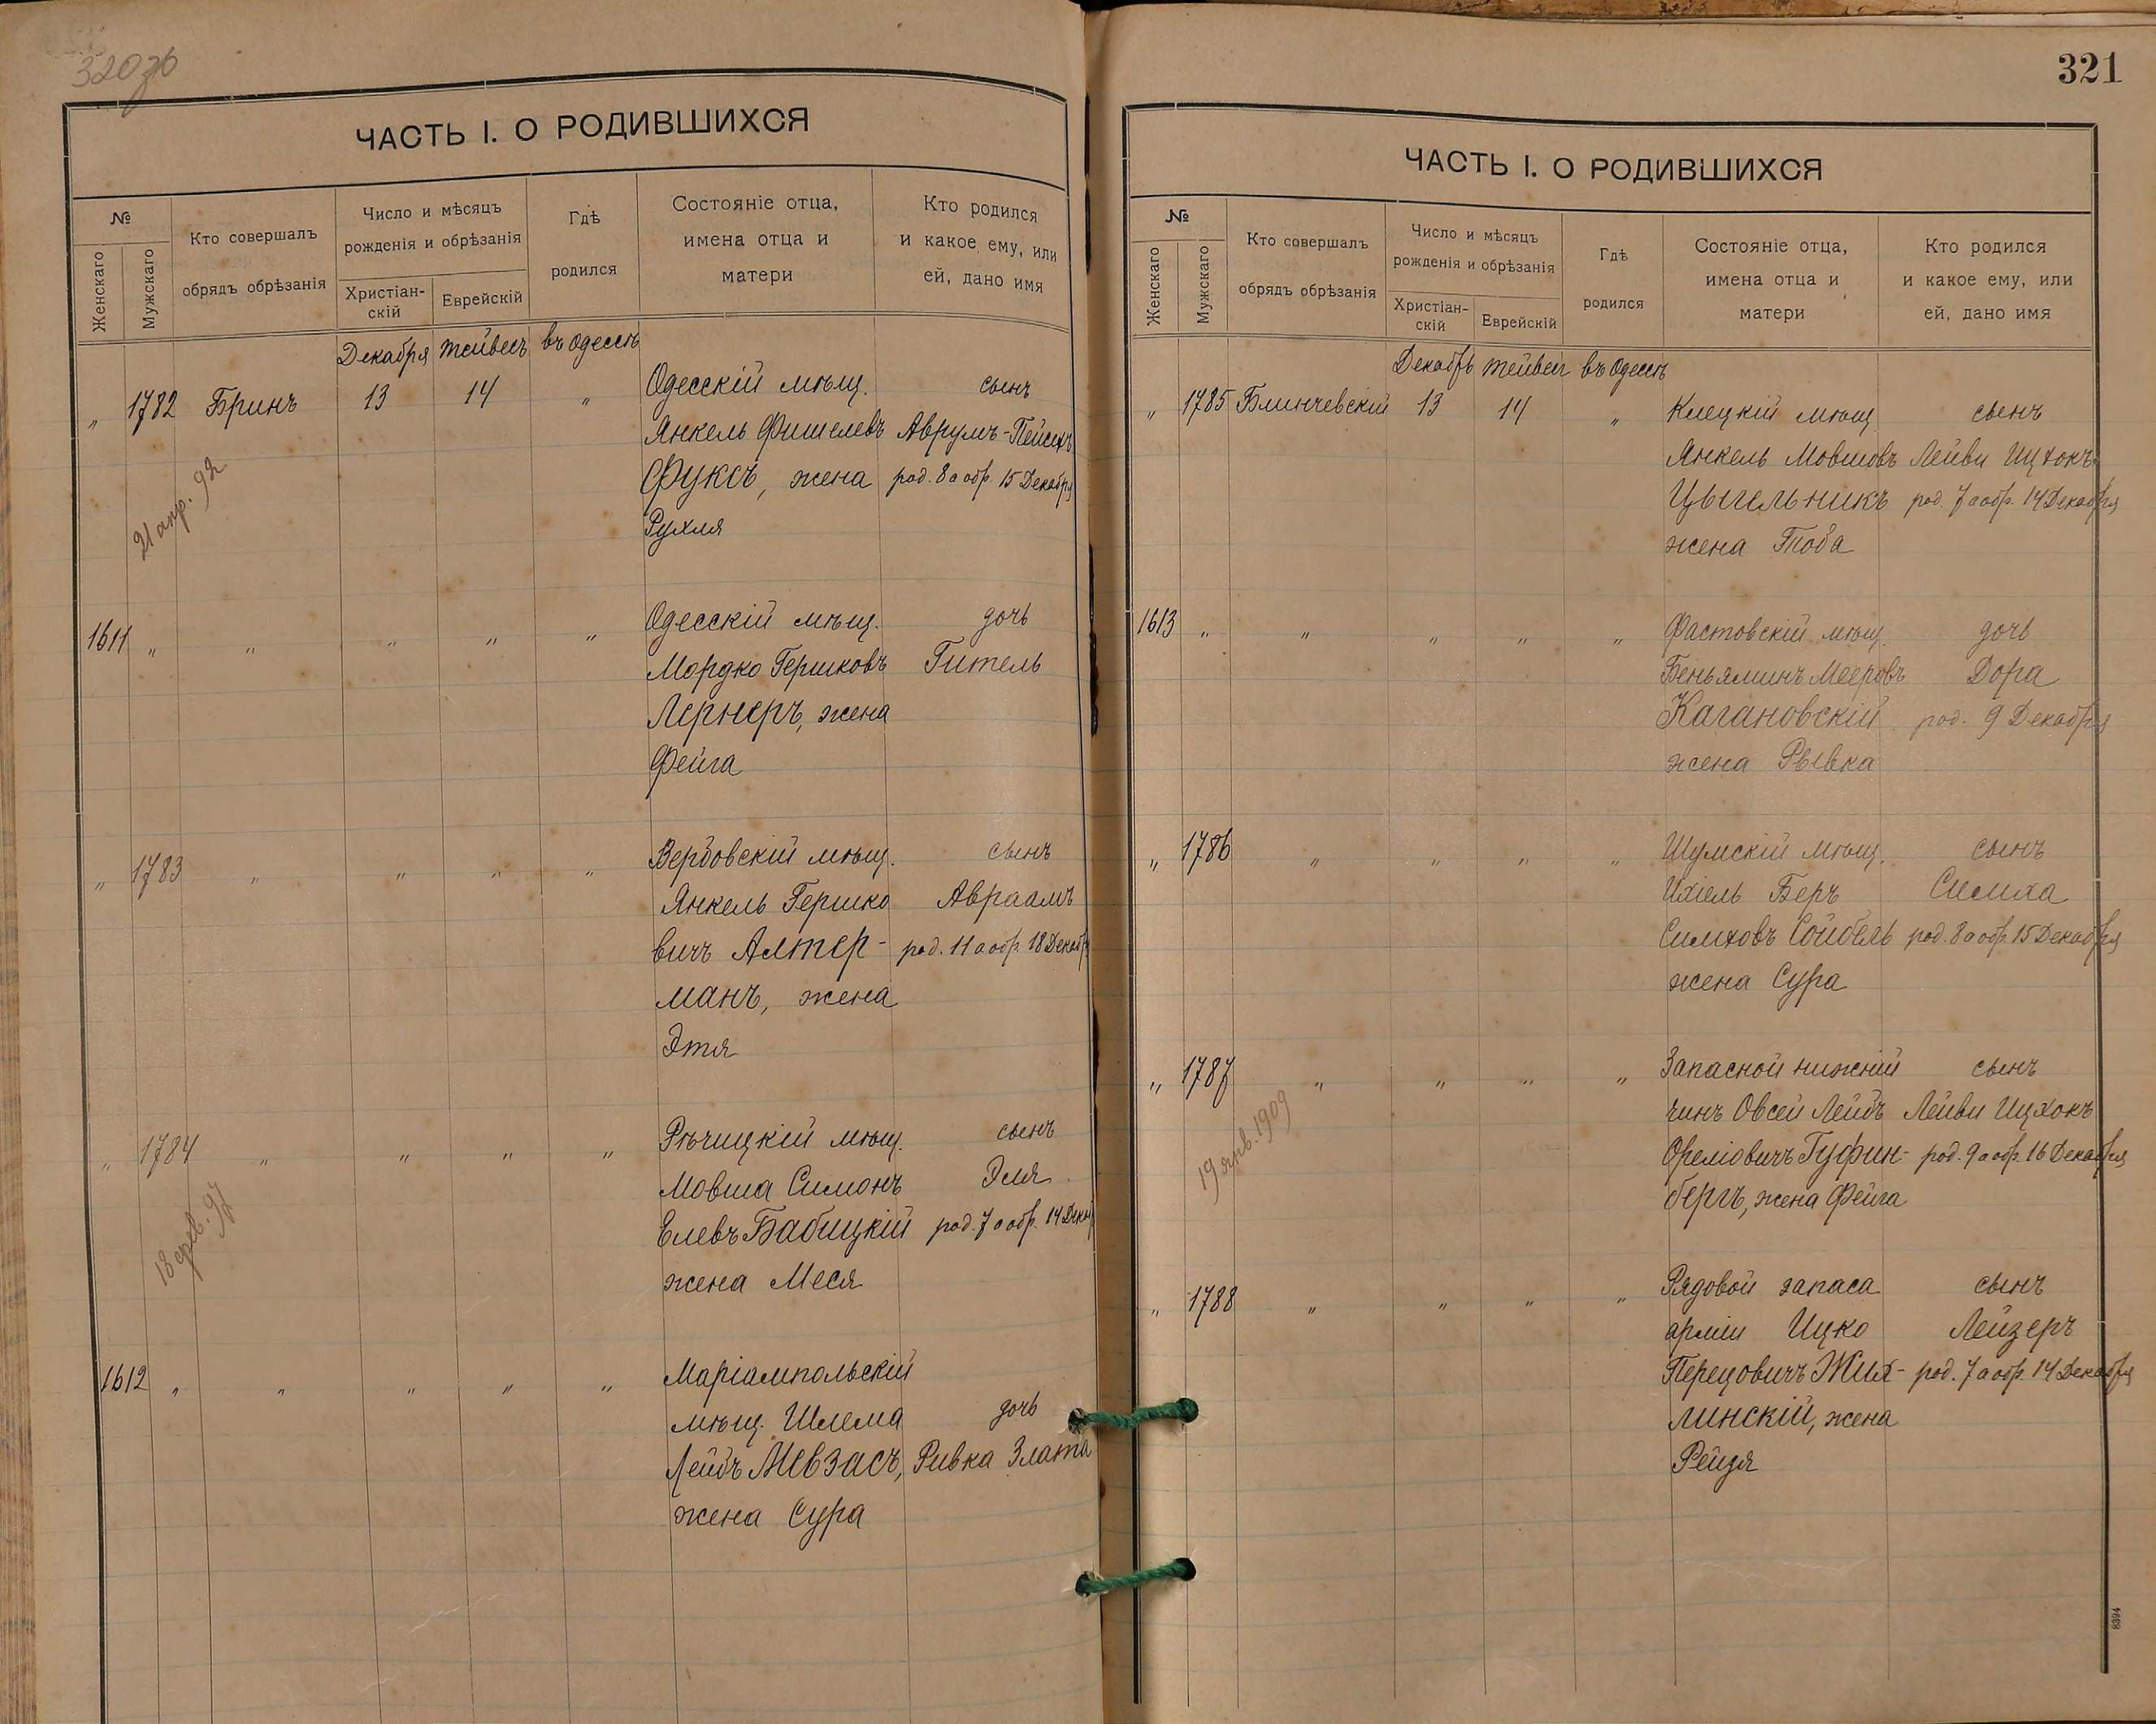 320
ЧАСТЬ I. О РОДИВШИХСЯ
№
Женскаго
Мужскаго
Кто совершалъ
обрядъ обрѣзанія
Число и мѣсяцъ
рожденія и обрѣзанія
Христіан-
скій
Еврейскій
Гдѣ
родился
Состояніе отца,
имена отца и
матери
Кто родился
и какое ему, или
ей, дано имя
Декабря Тейвесъ въ Одессѣ
" 1782 Бринъ 13 14 " Одесскій мѣщ. сынъ
Янкель Фишелевъ Аврумъ-Пейсехъ
Фуксъ, жена род. 8 а обр. 15 Декабря
Рухля
21 апр. 92
1611 " " " " " Одесскій мѣщ. дочь
Мордко Гершковъ Гитель
Лернеръ, жена
Фейга
" 1783 " " " " Вербовскій мѣщ. сынъ
Янкель Гершко Авраамъ
вичъ Алтер- род. 11 а обр. 18 Декабр
манъ, жена
Этя
" 1784 " " " " Рѣчицкій мѣщ. сынъ
Мовша Симонъ Эля
Елевъ Бабицкій род. 7 а обр. 14 Декаб
жена Меся
18 фев. 97
1612 " " " " " Маріампольскій
мѣщ. Шлема дочь
Лейбъ Мевзасъ, Ривка Злата
жена Сура
321
ЧАСТЬ I. О РОДИВШИХСЯ
№
Женскаго
Мужскаго
Кто совершалъ
обрядъ обрѣзанія
Число и мѣсяцъ
рожденія и обрѣзанія
Христіан-
скій
Еврейскій
Гдѣ
родился
Состояніе отца,
имена отца и
матери
Кто родился
и какое ему, или
ей, дано имя
Декабрь Тейвес въ Одессѣ
" 1785 Блинчевскій 13 14 " Клецкій мѣщ сынъ
Янкель Мовшовъ Лейви Ицхокъ
Цыгельникъ род. 7 а обр. 14 Декабря
жена Тоба
1613 " " " " " Фастовскій мѣщ. дочь
Беньяминъ Мееровъ Дора
Кагановскій род. 9 Декабря
жена Рывка
" 1786 " " " " Шумскій мѣщ. сынъ
Ихіель Беръ Симха
Симховъ Сойбель род. 8 а обр. 15 Декабря
жена Сура
" 1787 " " " " Запасной нижній сынъ
чинъ Овсей Лейбъ Лейви Ицхокъ
Ореліовичъ Гуфин- род. 9 а обр. 16 Декабря
бергъ, жена Фейга
19 янв. 1909
" 1788 " " " " Рядовой запаса сынъ
арміи Ицко Лейзеръ
Перецовичъ Жих- род. 7 а обр. 14 Декабря
линскій, жена
Рейзя
8394